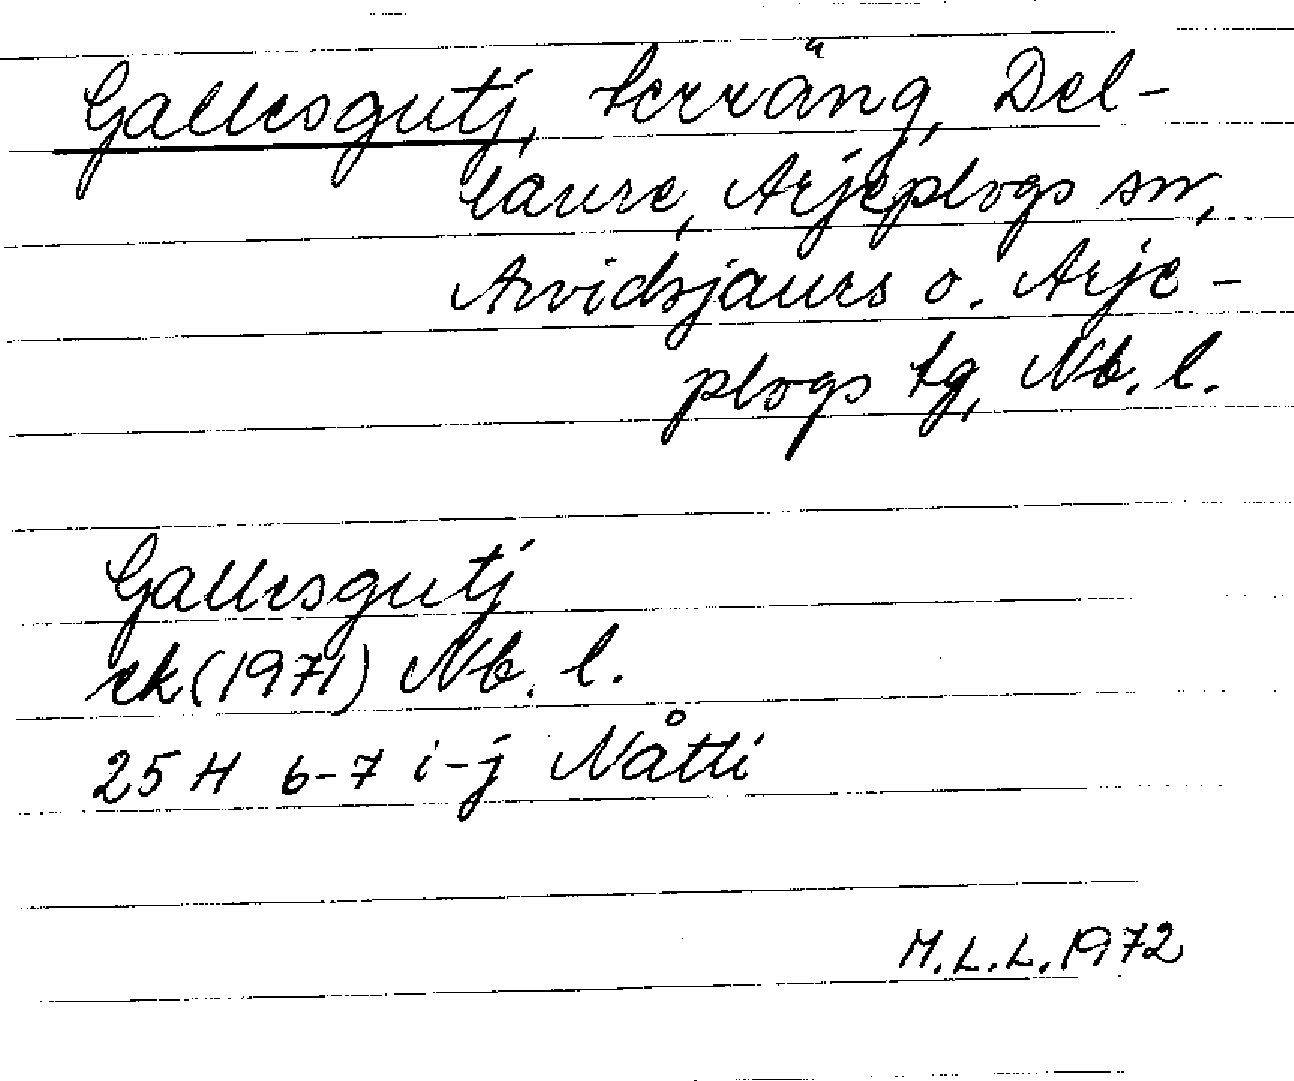 Gallesgutj, terräng, Del-
laure, Arjeplogs sn,
Arvidsjaurs o. Arje-
plogs tg, Nb. l.
Gallesgutj
ek (1971) Nb. l.
25 H 6-7 i-j Nåtti
M.L.L. 1972